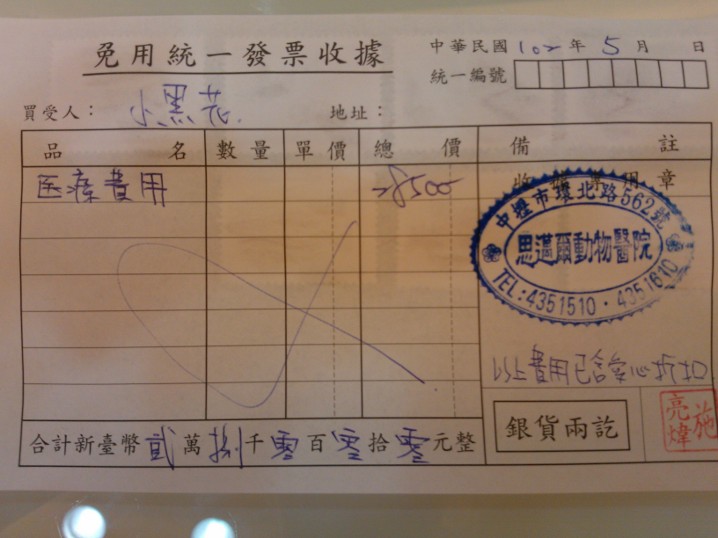 免用統一發票收據
中華民國102年5月 日
統一編號
買受人：小黑花
地址：
品名 數量 單價 總價 備註
医療費用 28500
收據專用章
中壢市環北路562號
思邁爾動物醫院
TEL:4351510·4351610
以上費用已含愛心折扣
合計新臺幣貳萬捌千零百零拾零元整
銀貨兩訖
施亮煒